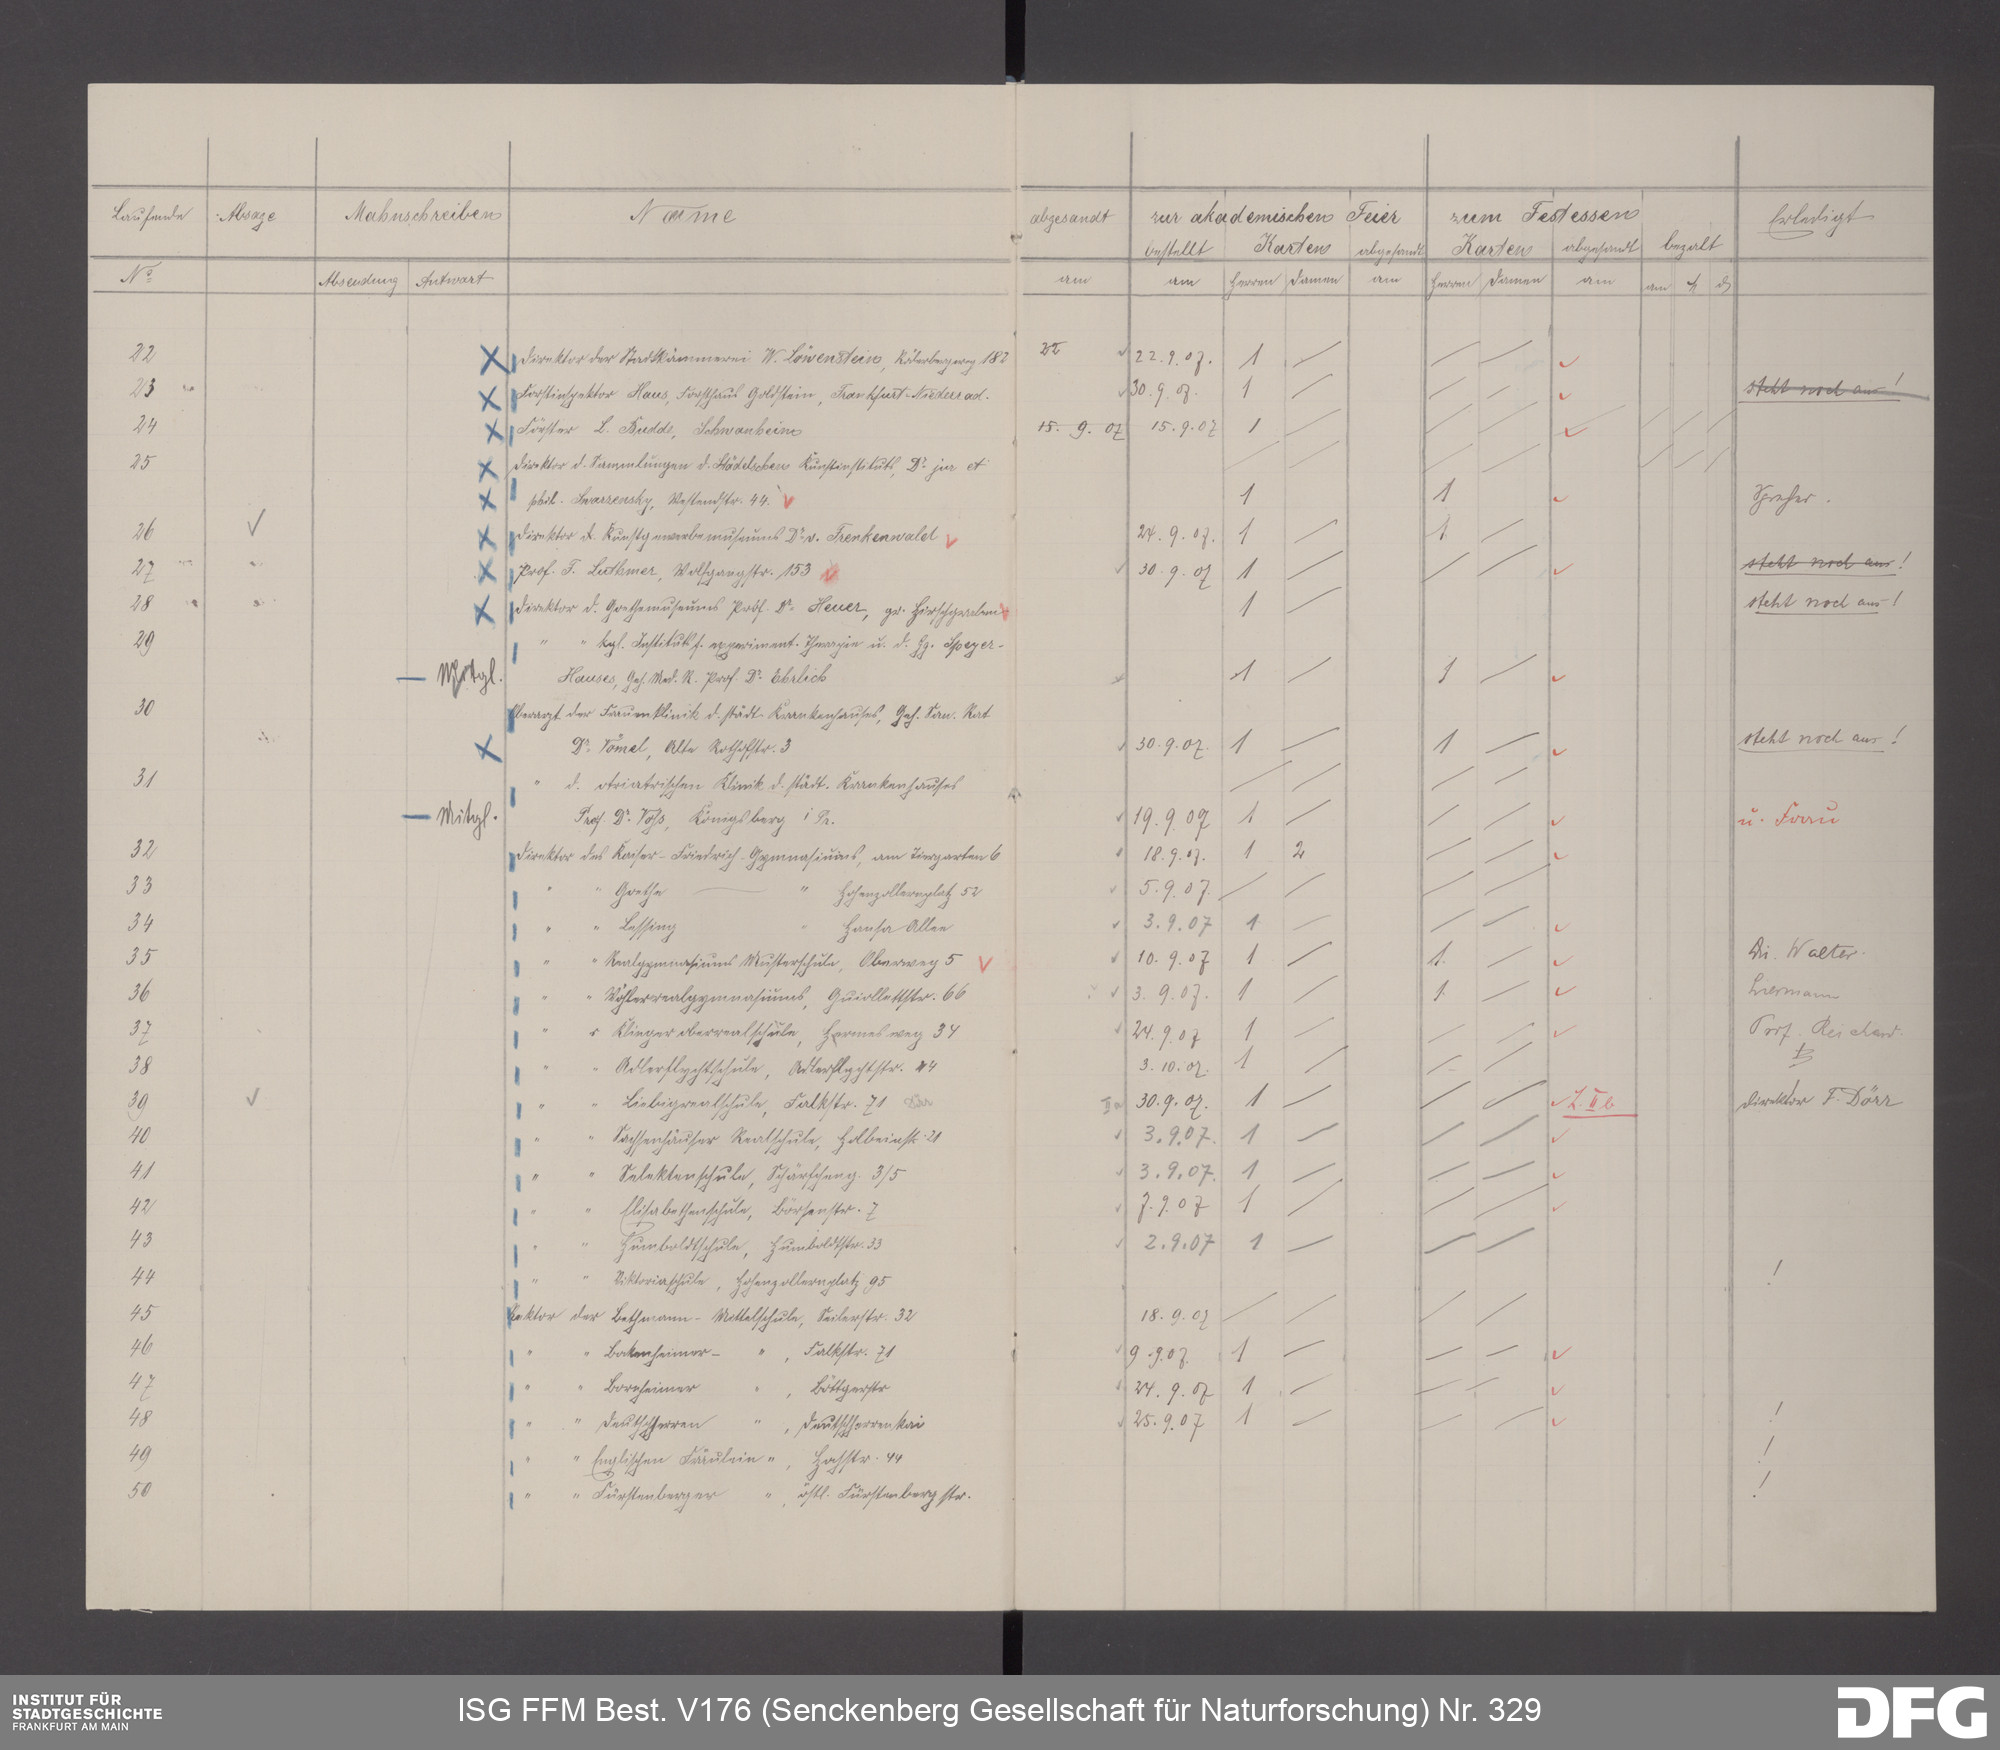 Laufende Absage Mahnschreiben Name abgesandt zur akademischen Feier zum Festessen Erledigt
bestellt Karten abgesandt Karten abgesandt bezalt
No Absendung Antwort am am Herren Damen am Herren Damen am am M d
22 Direktor der Stadtkämmerei W. Löwenstein, Röderbergweg 182 22 22.9.07. 1
23 Forstinspektor Haus, Forsthaus Goldstein, Frankfurt-Niederrad. 30.9.07. 1 steht noch aus!
24 Förster L. Budde, Schwanheim 15. 9. 07 15.9.07 1
25 Direktor d. Sammlungen d. Städelschen Kunstinstituts, Dr. jur et
phil. Swarzensky, Westendstr. 44. 1 1
26 Direktor d. Kunstgewerbemuseums Dr. v. Trenkenwald 24.9.07. 1 1
27 Prof. F. Luthmer, Wolfgangstr. 153 30.9.07 1 steht noch aus!
28 Direktor d. Goethemuseums Prof. Dr. Heuer, gr. Hirschgraben 1 steht noch aus!
29 " " kgl. Instituts f. experiment. Therapie u. d. Gg. Speyer-
Mitgl. Hauses, Geh. Med. R. Prof. Dr. Ehrlich 1 1
30 Oberarzt der Frauenklinik d. städt. Krankenhauses, Geh. San. Rat
Dr. Vömel, Alte Rothofstr. 3 30.9.07. 1 1 steht noch aus!
31 " d. otriatrischen Klinik d. städt. Krankenhauses
Mitgl. Prof. Dr. Voss, Königsberg i Pr. 19.9.07 1 u. Frau
32 Direktor des Kaiser-Friedrich-Gymnasiums, am Tiergarten 6 18.9.07. 1 2
33 " " Goethe " Hohenzollernplatz 52 5.9.07.
34 " " Lessing " Hansa Allee 3.9.07 1
35 " " Realgymnasiums Musterschule, Oberweg 5 10.9.07 1 1. Dir. Walter.
36 " " Wöhlerrealgymnasiums, Guiollettstr. 66 3.9.07. 1 1. Liermann
37 " " Klinger oberrealschule, Hermesweg 34 24.9.07 1 Prof. Reichard.
38 " " Adlerflychtschule, Adlerflychtstr. 24 3.10.07. 1
39 " " Liebigrealschule, Falkstr. 71 Dörr II a 30.9.07. 1 L. II b Direktor F. Dörr
40 " " Sachsenhäuser Realschule, Holbeinstr. 21 3.9.07. 1
41 " " Selektenschule, Schärfeng. 3/5 3.9.07. 1
42 " " Elisabethenschule, Börsenstr. 7 7.9.07 1
43 " " Humboldtschule, Humboldtstr. 33 2.9.07 1
44 " " Viktoriaschule, Hohenzollernplatz 95 !
45 Rektor der Bethmann-Mittelschule, Seilerstr. 32 18.9.07
46 " " Bockenheimer- " , Falkstr. 71 9.9.07. 1
47 " " Bornheimer " , Böttgerstr 24.9.07 1
48 " " Deutschherren " , Deutschherrenkai 25.9.07 1 !
49 " " Englischen Fräulein " , Hochstr. 44 !
50 " " Fürstenberger " , östl. Fürstenbergstr. !
INSTITUT FÜR
STADTGESCHICHTE
FRANKFURT AM MAIN
ISG FFM Best. V176 (Senckenberg Gesellschaft für Naturforschung) Nr. 329
DFG